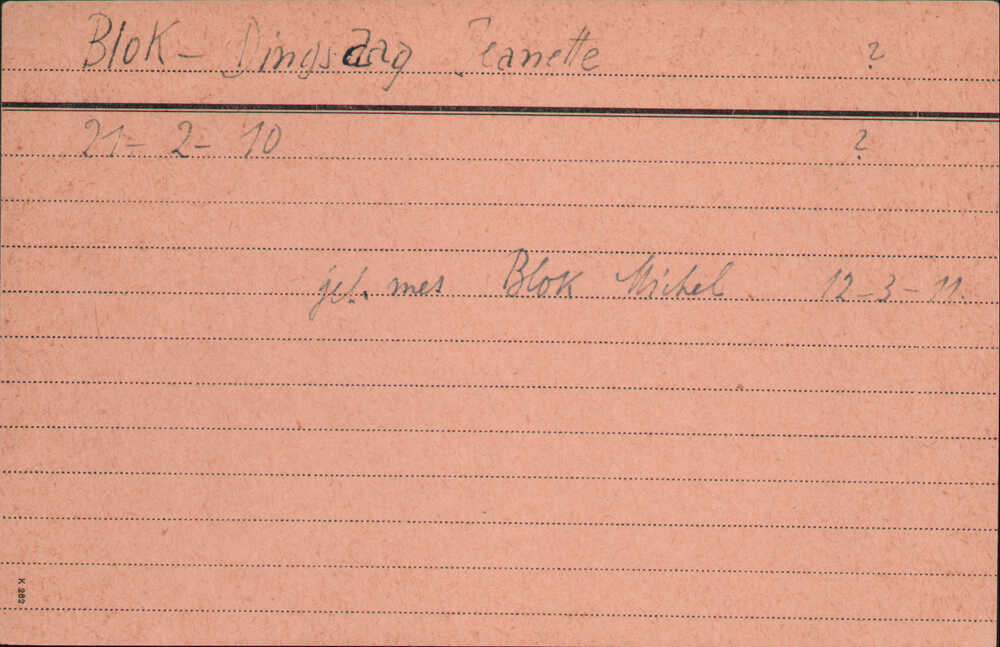 Blok - Dingsdag Jeanette ?
21- 2- 10 ?
get. mes Blok Michel 12-3-11
K 262